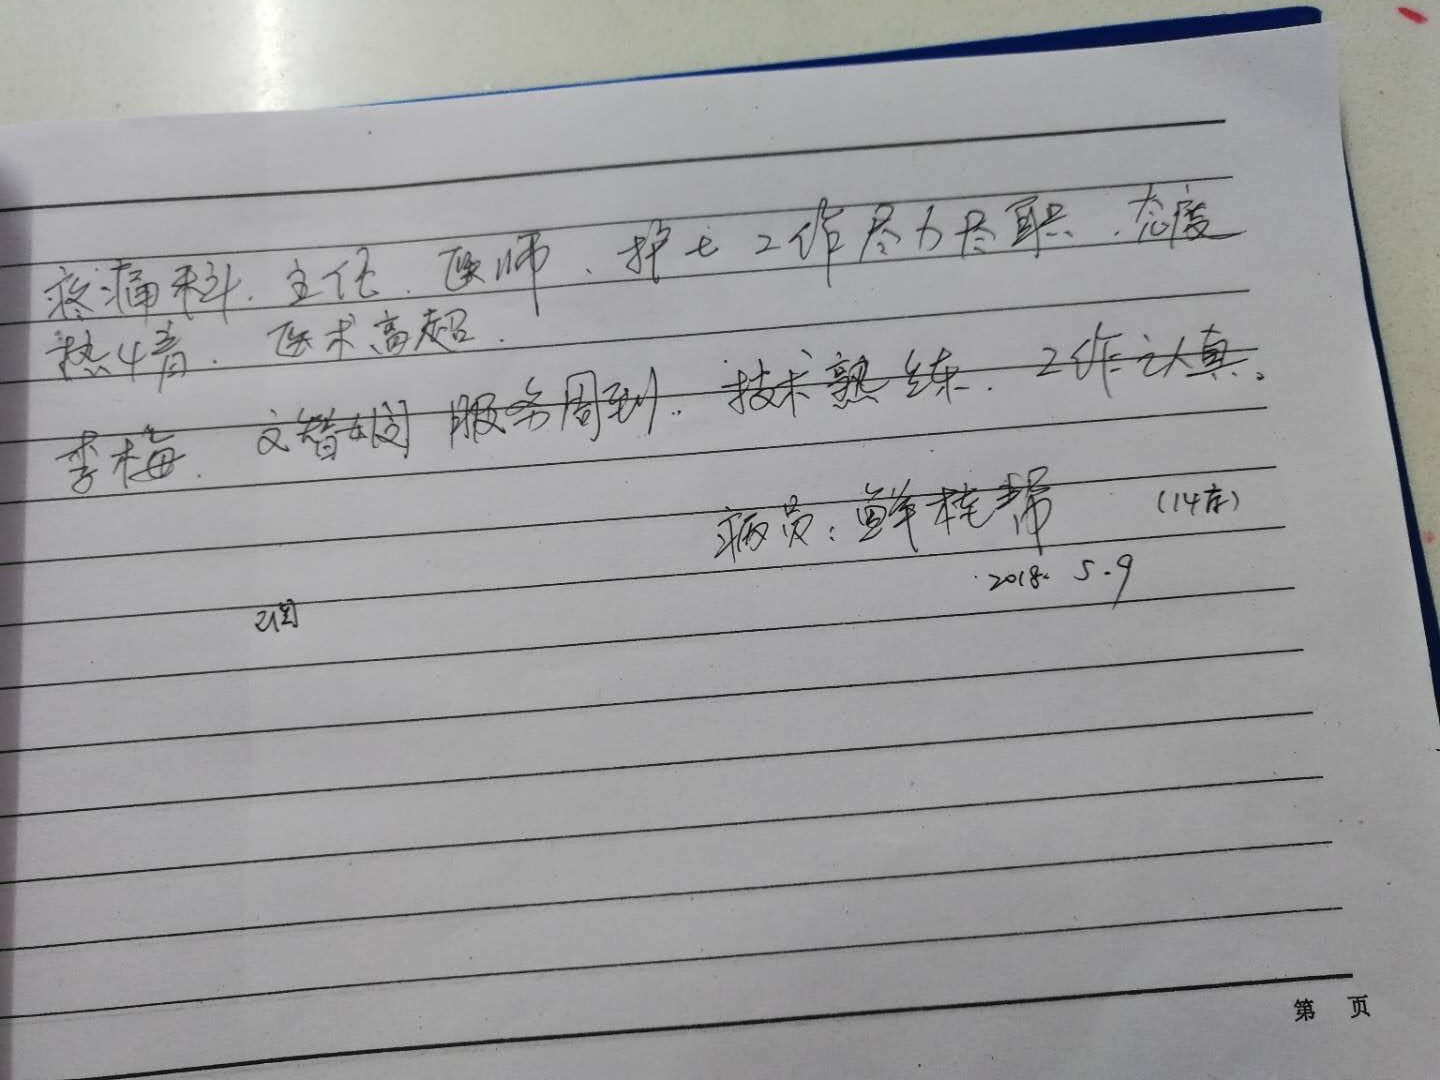 疼痛科、主任、医师、护士工作尽力尽职、态度
热情、医术高超.
李梅、文智姻服务周到、技术熟练、工作认真。
病员：鲜桂帮 (14床)
2018. 5.9
第 页